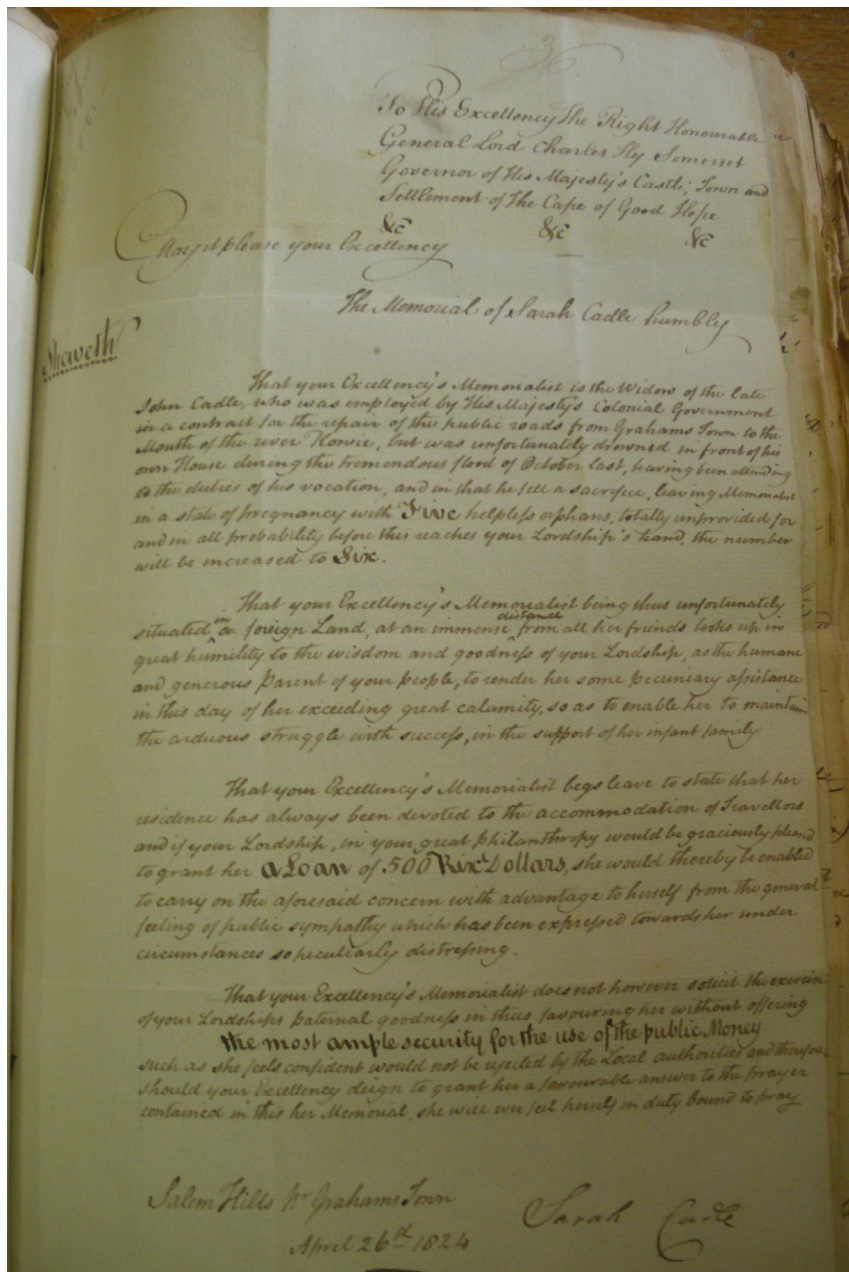 3
To His Excellency The Right Honourable
General Lord Charles Hy Somerset
Governor of His Majesty's Castle, Town and
Settlement of The Cape of Good Hope
&c &c &c
May it please your Excellency
The Memorial of Sarah Cadle humbly
Sheweth
That your Excellency's Memorialist is the Widow of the late
John Cadle, who was employed by His Majesty's Colonial Government
in a contract for the repair of the public roads from Grahams Town to the
Mouth of the river Kowie, but was unfortunately drowned in front of his
own House during the tremendous flood of October last, having been attending
to the duties of his vocation, and in that he fell a sacrifice, leaving Memorialist
in a state of pregnancy with Five helpless orphans, totally unprovided for
and in all probability before this reaches your Lordship's hand, the number
will be increased to Six.
That your Excellency's Memorialist being thus unfortunately
situated in a foreign Land, at an immense distance from all her friends looks up in
great humility to the wisdom and goodness of your Lordship, as the humane
and generous Parent of your people, to render her some pecuniary assistance
in this day of her exceeding great calamity, so as to enable her to maintain
the arduous struggle with success, in the support of her infant family
That your Excellency's Memorialist begs leave to state that her
residence has always been devoted to the accommodation of Travellors
and if your Lordship, in your great philanthropy would be graciously pleased
to grant her a Loan of 500 Rix Dollars, she would thereby be enabled
to carry on the aforesaid concern with advantage to herself from the general
feeling of public sympathy which has been expressed towards her under
circumstances so peculiarly distressing.
That your Excellency's Memorialist does not however solicit the exercise
of your Lordships paternal goodness in thus favouring her without offering
the most ample security for the use of the public Money
such as she feels confident would not be rejected by the Local authorities and therefore,
should your Excellency deign to grant her a favourable answer to the prayer
contained in this her Memorial, she will ever feel herself in duty bound to pray
Salem Hills Nr Grahams Town
April 26th 1824
Sarah Cadle